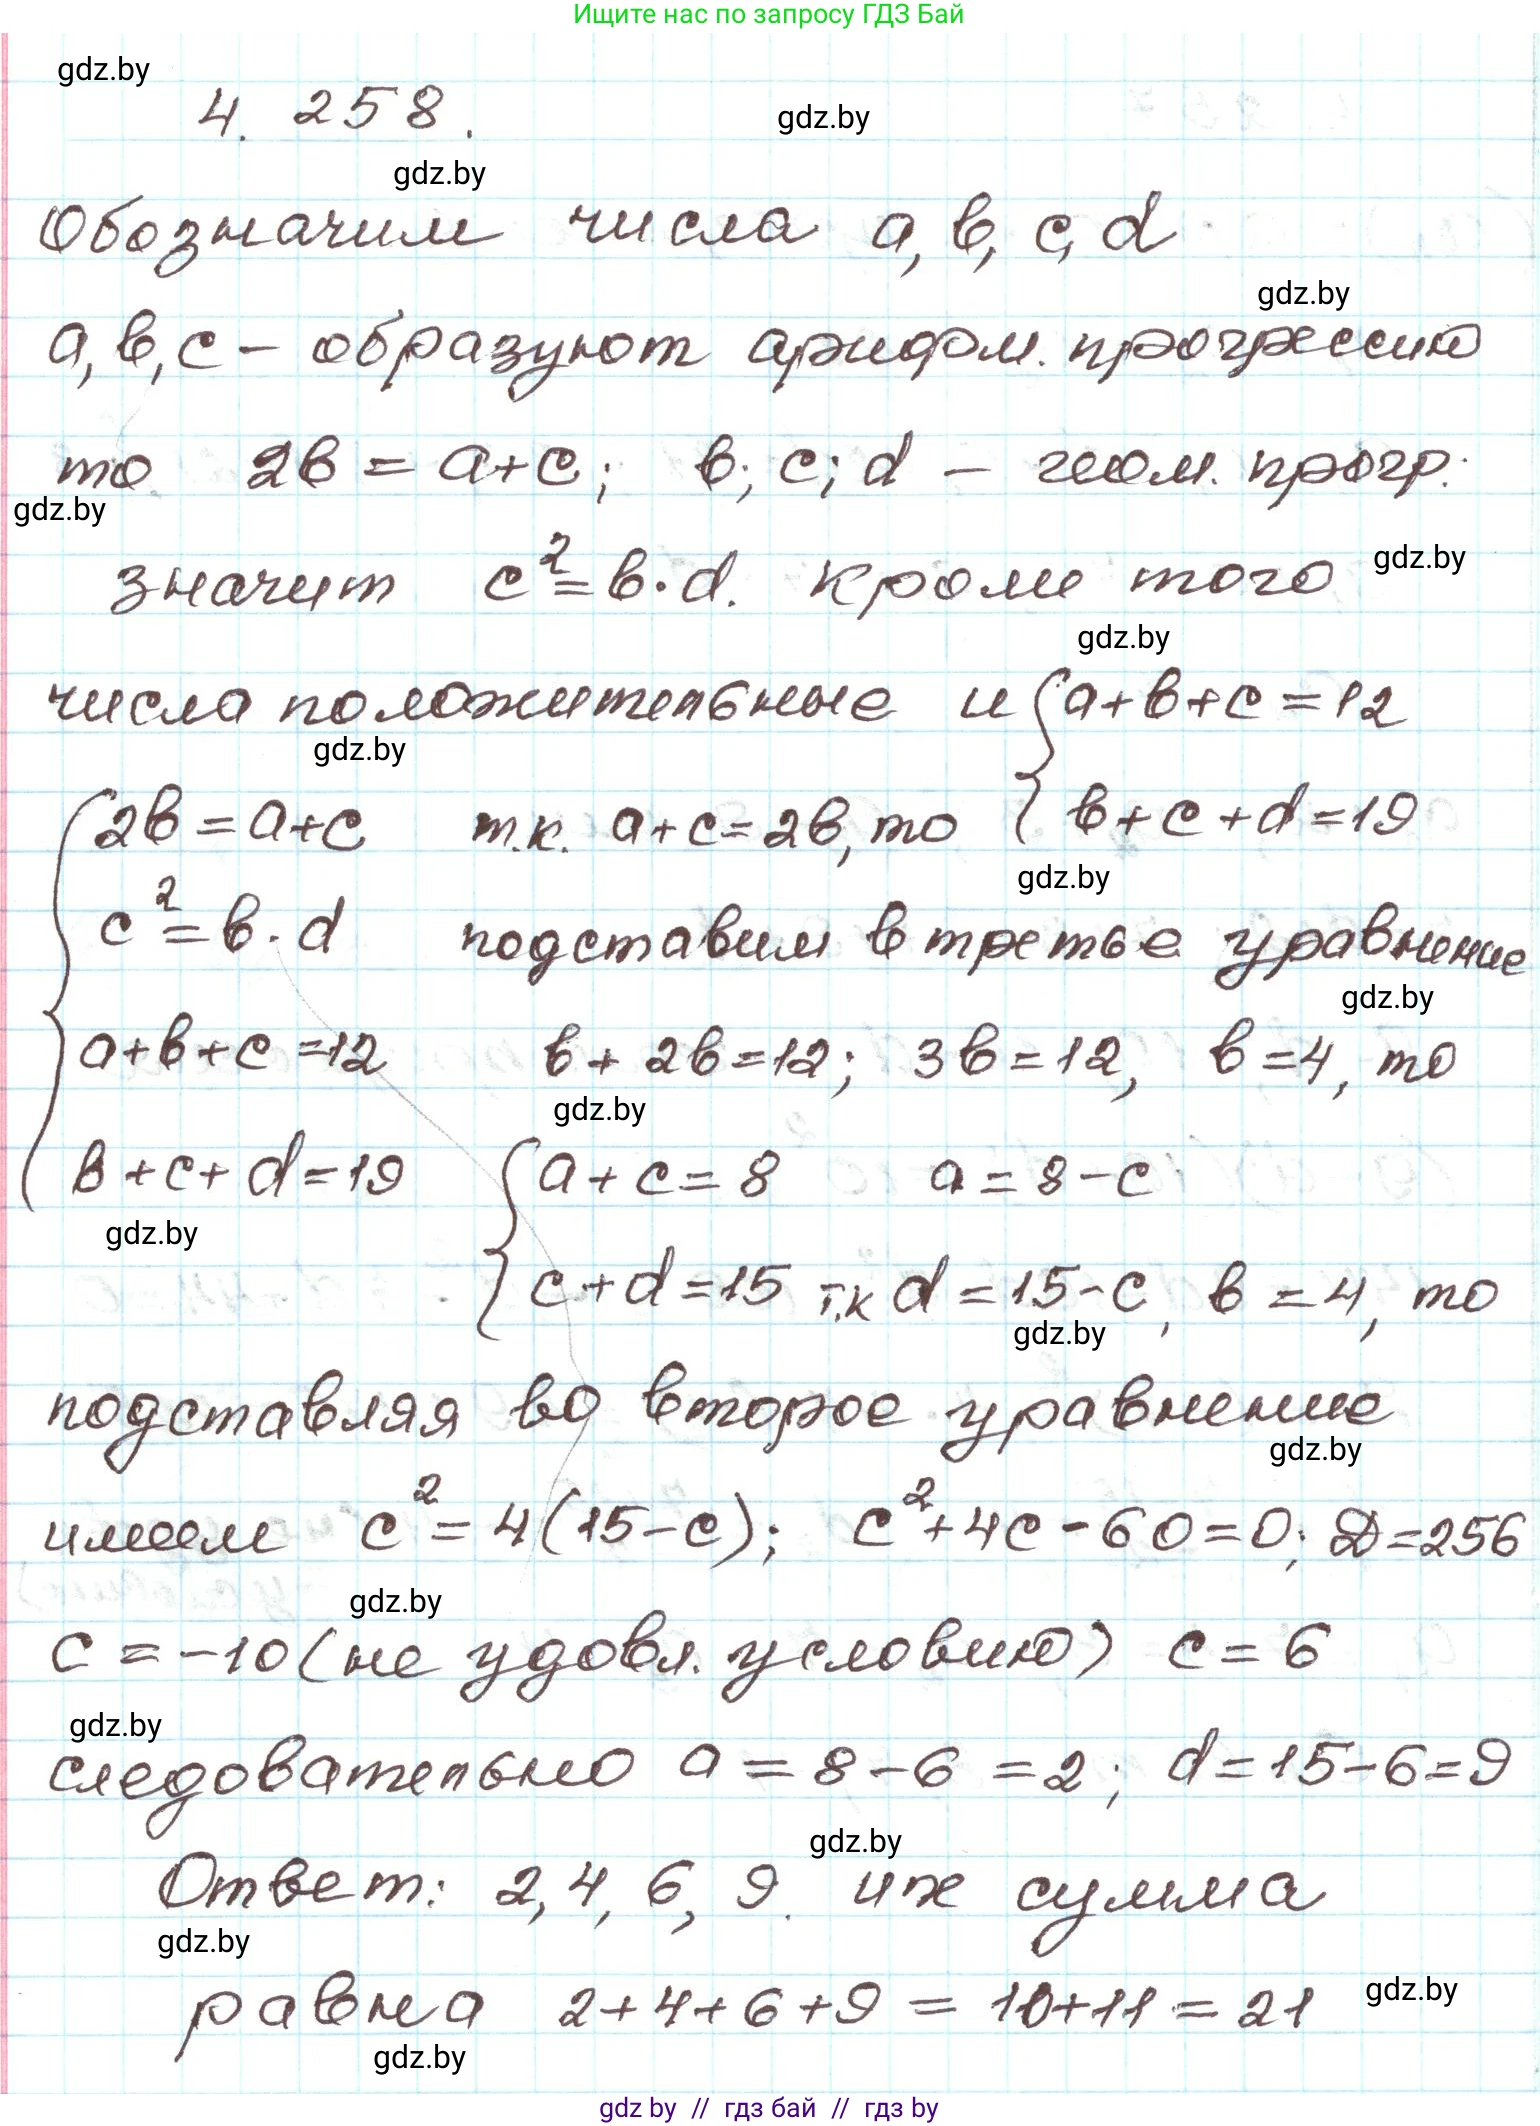 Ищите нас по запросу ГДЗ Бай
gdz.by
4. 258.
gdz.by
gdz.by
Обозначим числа a, b, c, d
gdz.by
a, b, c – образуют арифм. прогрессию
то 2b = a+c; b; c; d – геом. прогр.
gdz.by
значит c² = b·d. кроме того
gdz.by
gdz.by
числа положительные и { a+b+c=12
gdz.by
{ 2b = a+c т.к. a+c=2b, то b+c+d=19
gdz.by
c² = b·d подставим в третье уравнение
gdz.by
a+b+c=12 b+2b=12; 3b=12, b=4, то
gdz.by
b+c+d=19 { a+c=8 a=8-c
gdz.by
c+d=15 т.к d=15-c, b=4, то
gdz.by
подставляя во второе уравнение
gdz.by
имеем c²=4(15-c); c²+4c-60=0; D=256
gdz.by
c = -10 (не удовл. условию) c = 6
gdz.by
следовательно a = 8-6 = 2; d=15-6=9
gdz.by
Ответ: 2, 4, 6, 9. их сумма
gdz.by
равна 2+4+6+9 = 10+11 = 21
gdz.by
gdz.by
gdz by // гдз бай // гдз by